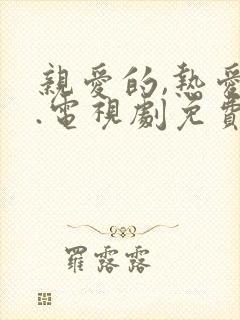 親愛的,熱愛
.電視劇免費
羅露露